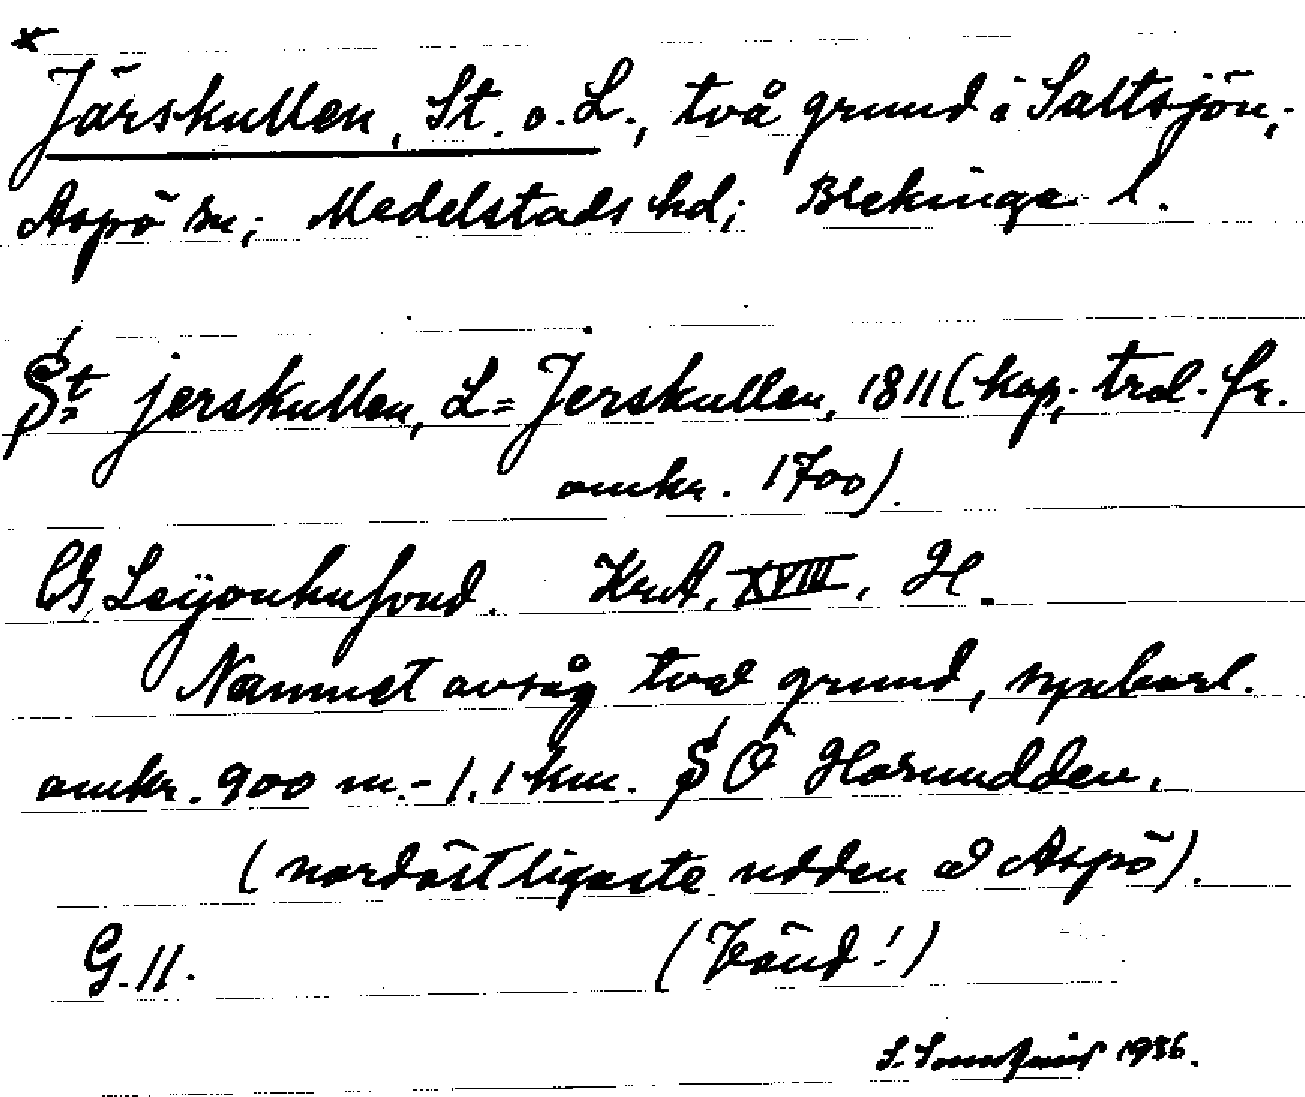 Järskullen, St. o. L., två grund i Saltsjön,
Aspö sn; Medelstads hd; Blekinge l.
St jerskullen, L= Jerskullen, 1811 (kop. trol. fr.
omkr. 1700).
Leijonhufvud. KrA. XVIII. H.
Namnet avsåg två grund, synbarl.
omkr. 900 m. - 1,1 km. SÖ Horsudden,
(nordöstligaste udden å Aspö).
G. 11. (Vänd!)
1936.